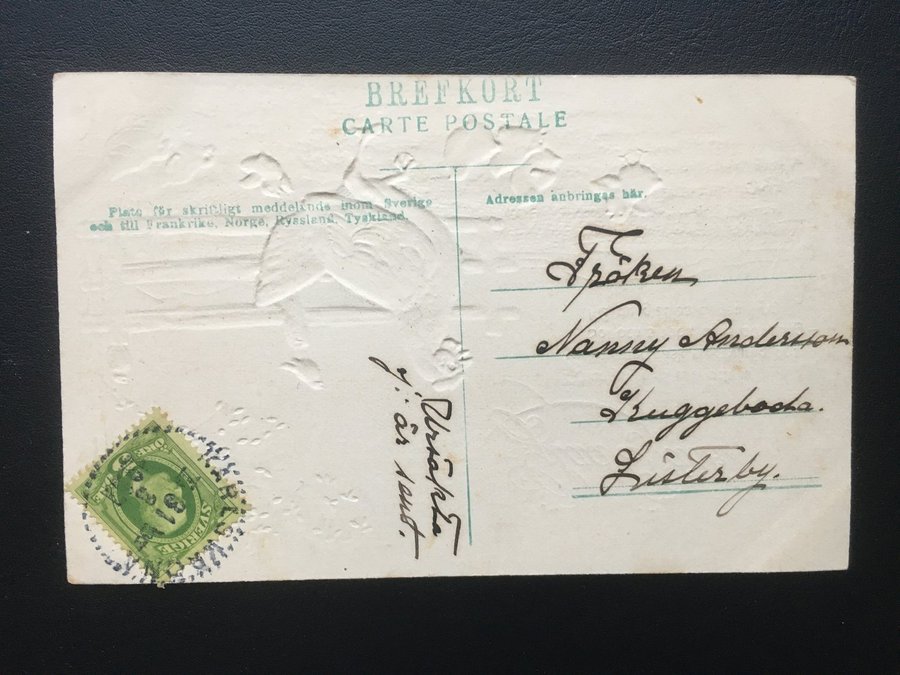 BREFKORT
CARTE POSTALE
Plats för skriftligt meddelande inom Sverige
och till Frankrike, Norge, Ryssland, Tyskland.
Adressen anbringas här.
Fröken
Nanny Andersson
Kuggeboda.
Listerby.
Ursäkta
j: är sent.
SVERIGE
31